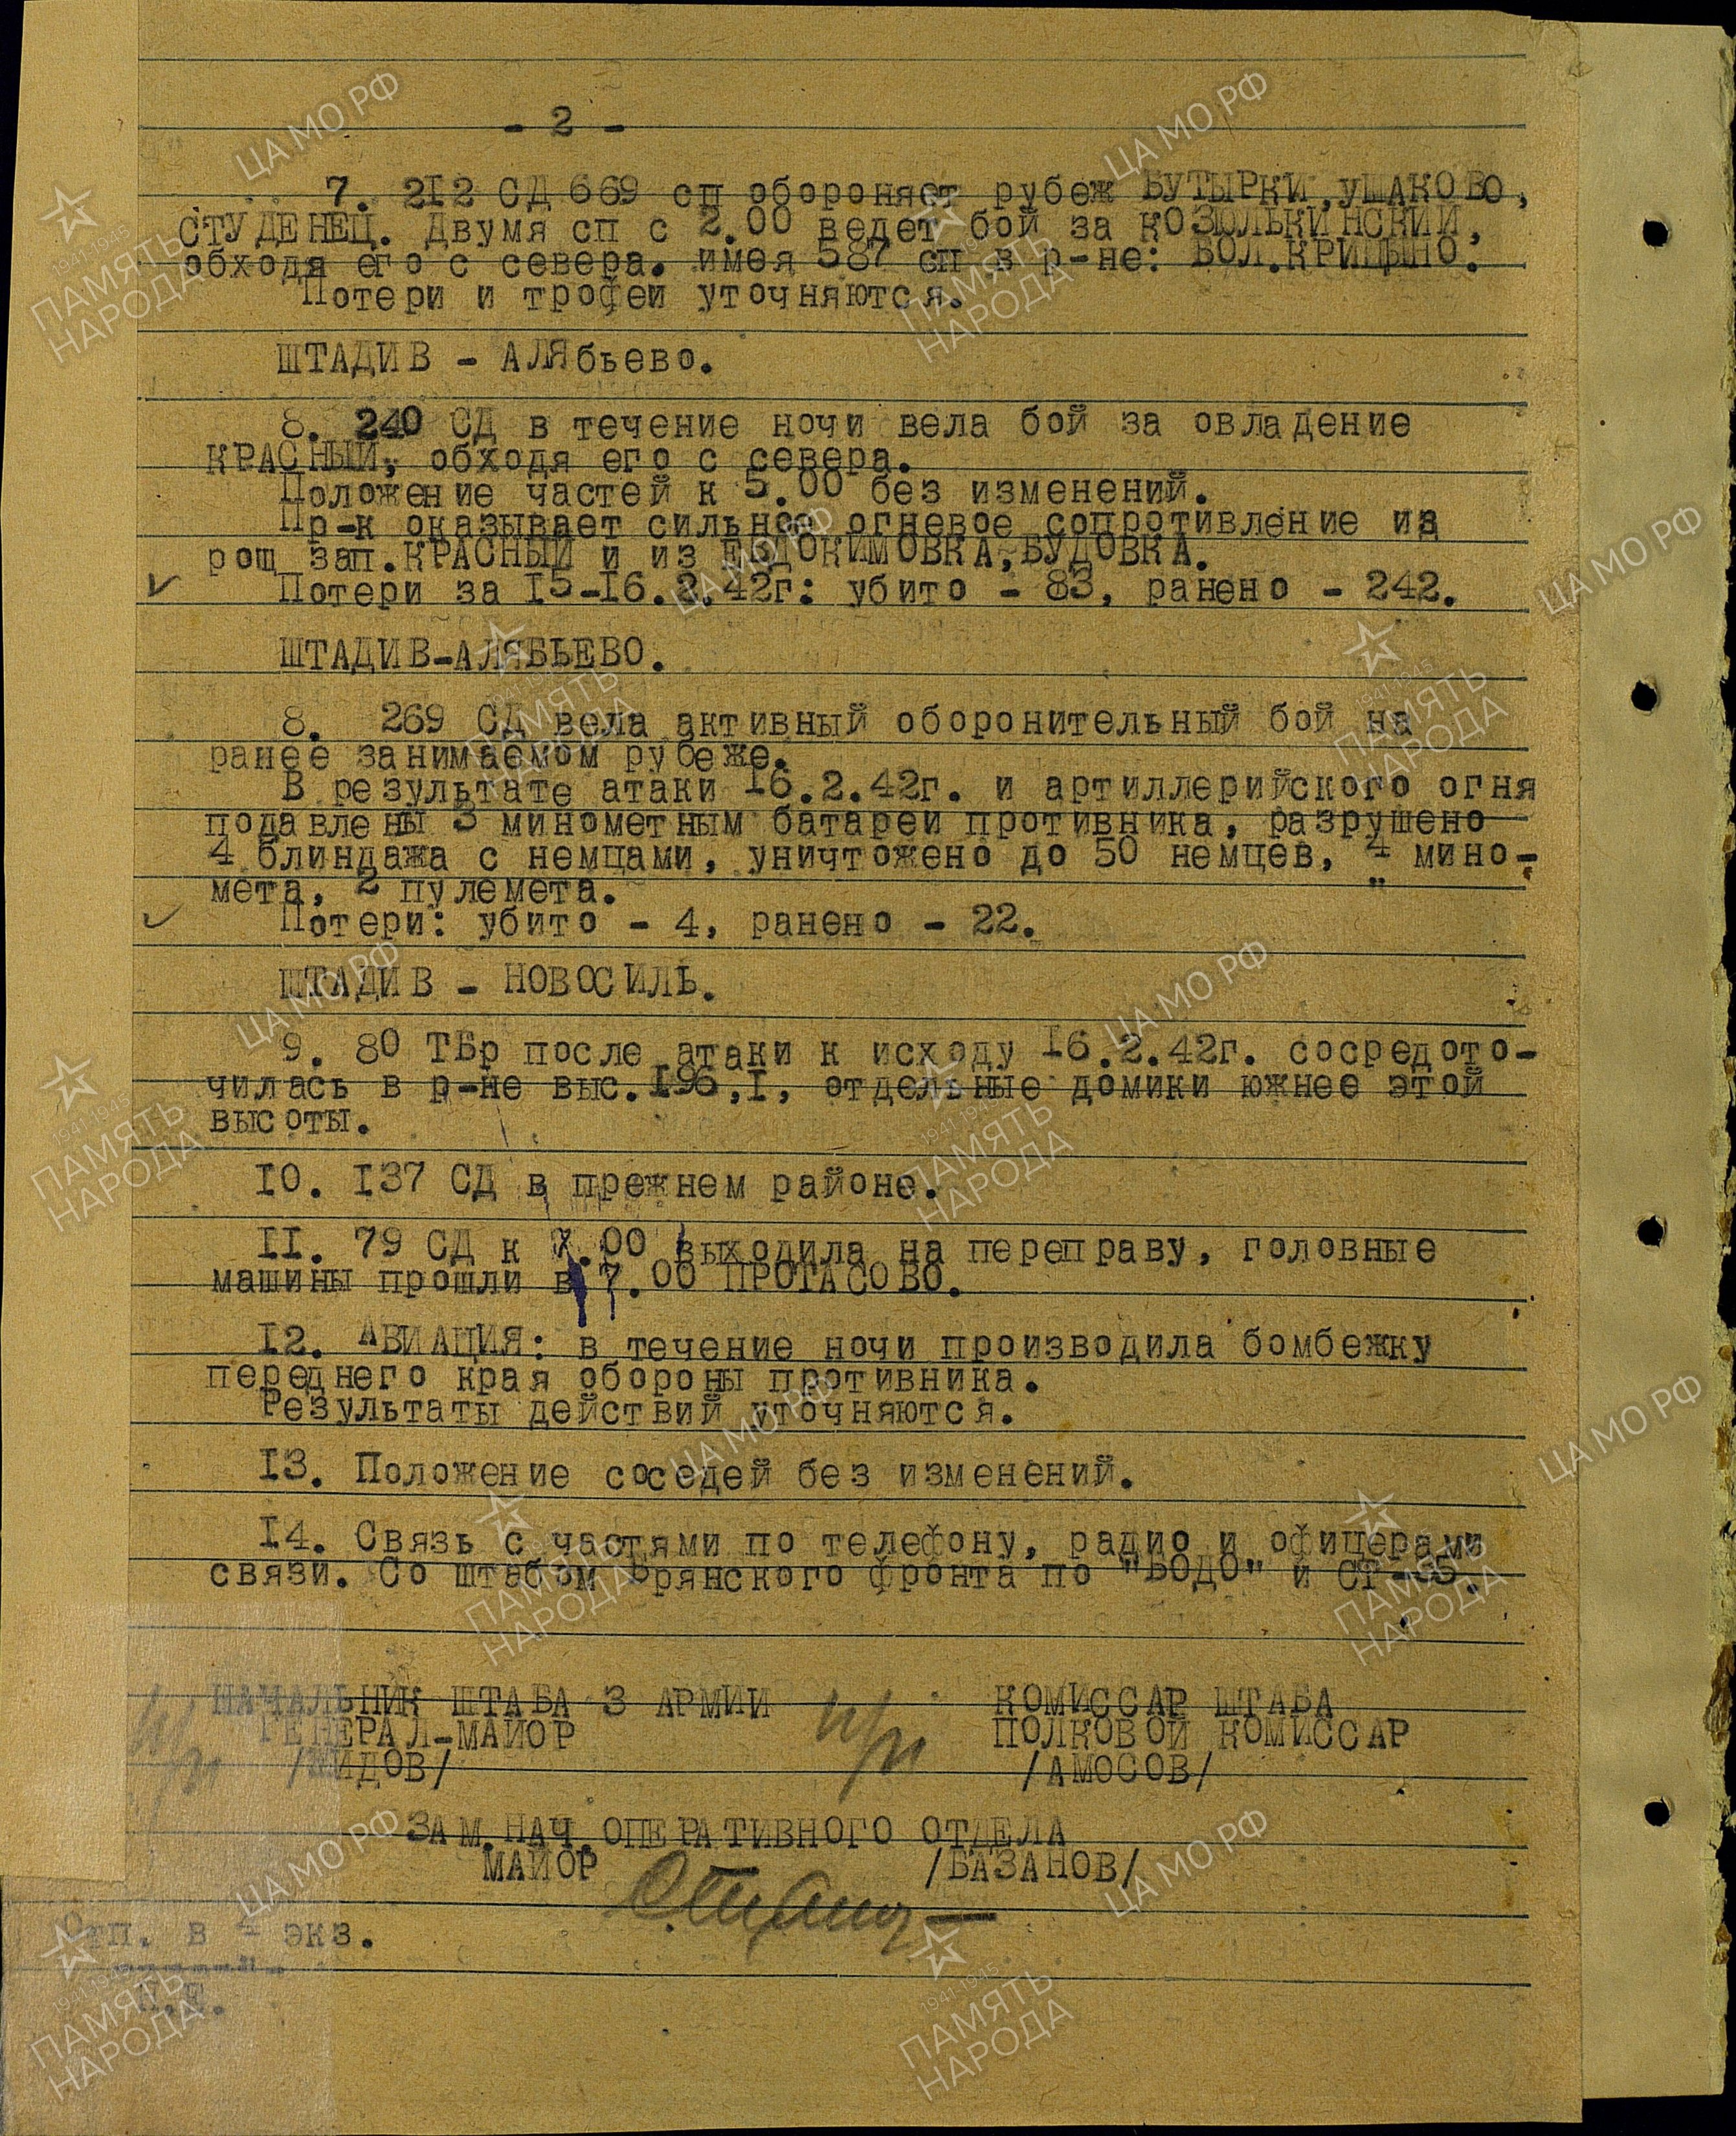 - 2 -
7. 212 СД 669 сп обороняет рубеж БУТЫРКИ, УШАКОВО,
СТУДЕНЕЦ. Двумя сп с 2.00 ведет бой за КОЗЮЛЬКИНСКИЙ,
обходя его с севера. имея 587 сп в р-не: БОЛ.КРИЦЫНО.
Потери и трофеи уточняются.
ШТАДИВ - АЛЯбьево.
8. 240 СД в течение ночи вела бой за овладение
КРАСНЫЙ, обходя его с севера.
Положение частей к 5.00 без изменений.
Пр-к оказывает сильное огневое сопротивление из
рощ зап.КРАСНЫЙ и из ЕВДОКИМОВКА, БУДОВКА.
Потери за 15-16.2.42г: убито - 83, ранено - 242.
ШТАДИВ-АЛЯБЬЕВО.
8. 269 СД вела активный оборонительный бой на
ранее занимаемом рубеже.
В результате атаки 16.2.42г. и артиллерийского огня
подавлены 3 минометным батареи противника, разрушено
4 блиндажа с немцами, уничтожено до 50 немцев, 4 мино-
мета, 2 пулемета.
Потери: убито - 4, ранено - 22.
ШТАДИВ - НОВОСИЛЬ.
9. 80 ТБр после атаки к исходу 16.2.42г. сосредото-
чилась в р-не выс.196,1, отдельные домики южнее этой
высоты.
10. 137 СД в прежнем районе.
11. 79 СД к 7.00 выходила на переправу, головные
машины прошли в 7.00 ПРОТАСОВО.
12. АВИАЦИЯ: в течение ночи производила бомбежку
переднего края обороны противника.
Результаты действий уточняются.
13. Положение соседей без изменений.
14. Связь с частями по телефону, радио и офицерами
связи. Со штабом Брянского фронта по "БОДО" и СТ-35.
НАЧАЛЬНИК ШТАБА 3 АРМИИ КОМИССАР ШТАБА
ГЕНЕРАЛ-МАЙОР ПОЛКОВОЙ КОМИССАР
/ЖИДОВ/ п/п /АМОСОВ/
ЗАМ.НАЧ.ОПЕРАТИВНОГО ОТДЕЛА
МАЙОР /БАЗАНОВ/
Отп. в 4 экз.